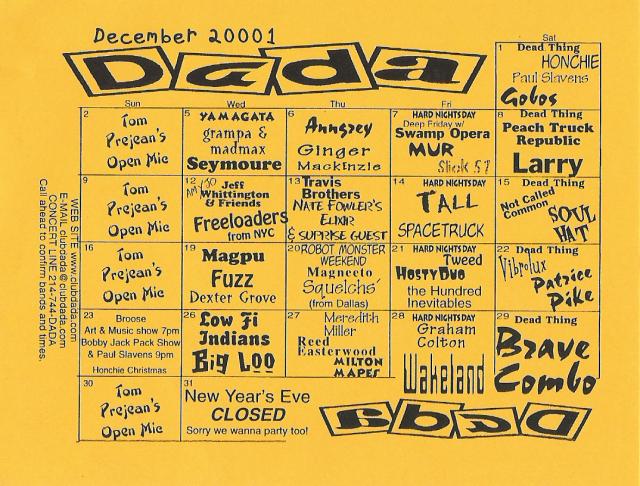 December 20001
Dada
Sun
Wed
Thu
Fri
Sat
1 Dead Thing
HONCHIE
Paul Slavens
Gobos
2
Tom
Prejean's
Open Mic
5 YAMAGATA
grampa &
madmax
Seymoure
6
Anngrey
Ginger
Mackinzie
7 HARD NIGHTSDAY
Deep Friday w/
Swamp Opera
MUR
Slick 57
8 Dead Thing
Peach Truck
Republic
Larry
9
Tom
Prejean's
Open Mic
12 Jeff
Whittington
& Friends
Freeloaders
from NYC
13 Travis
Brothers
NATE FOWLER'S
ELIXIR
& SUPRISE GUEST
14 HARD NIGHTSDAY
TALL
SPACETRUCK
15 Dead Thing
Not Called
Common
SOUL
HAT
16
Tom
Prejean's
Open Mic
19
Magpu
Fuzz
Dexter Grove
20 ROBOT MONSTER
WEEKEND
Magneeto
Squelchs'
(from Dallas)
21 HARD NIGHTSDAY
Tweed
HOSTY DUO
the Hundred
Inevitables
22 Dead Thing
Vibrolux
Patrice
Pike
23 Broose
Art & Music show 7pm
Bobby Jack Pack Show
& Paul Slavens 9pm
Honchie Christmas
26 Low Fi
Indians
Big Loo
27 Meredith
Miller
Reed
Easterwood
MILTON
MAPES
28 HARD NIGHTSDAY
Graham
Colton
Wakeland
29 Dead Thing
Brave
Combo
30
Tom
Prejean's
Open Mic
31
New Year's Eve
CLOSED
Sorry we wanna party too!
Dada
WEB SITE www.clubdada.com
E-MAIL clubdada@clubdada.com
CONCERT LINE 214-744-DADA
Call ahead to confirm bands and times.